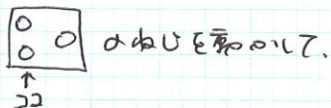 のねじを動かして、
↑
ココ